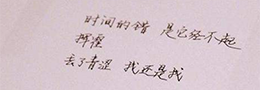 时间的错 是它经不起
挥霍
丢了青涩 我还是我